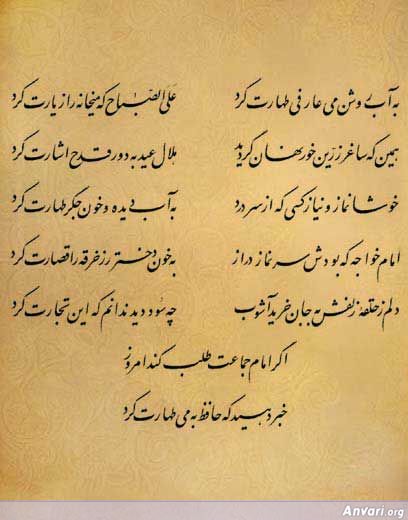 به آب روشن می عارفی طهارت کرد علی الصباح که میخانه را زیارت کرد
همین که ساغر زرین خور نهان گردید هلال عید به دور قدح اشارت کرد
خوشا نماز و نیاز کسی که از سر درد به آب دیده و خون جگر طهارت کرد
امام خواجه که بودش سر نماز دراز به خون دختر رز خرقه را قصارت کرد
دلم ز حلقه زلفش به جان خرید آشوب چه سود دید ندانم که این تجارت کرد
اگر امام جماعت طلب کند امروز
خبر دهید که حافظ به می طهارت کرد
Anvari.org